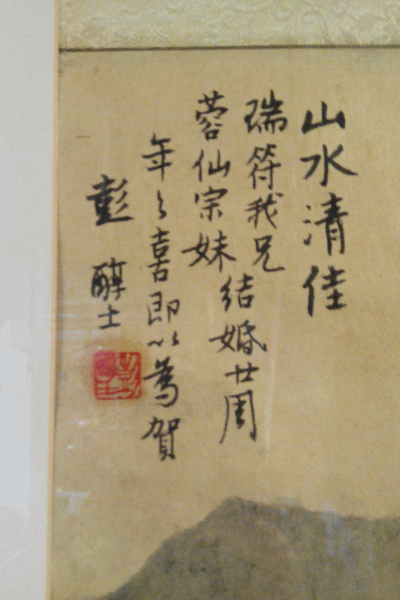 山水清佳
瑞符我兄
蓉仙宗妹
結婚廿周
年之喜即以為賀
彭醇士